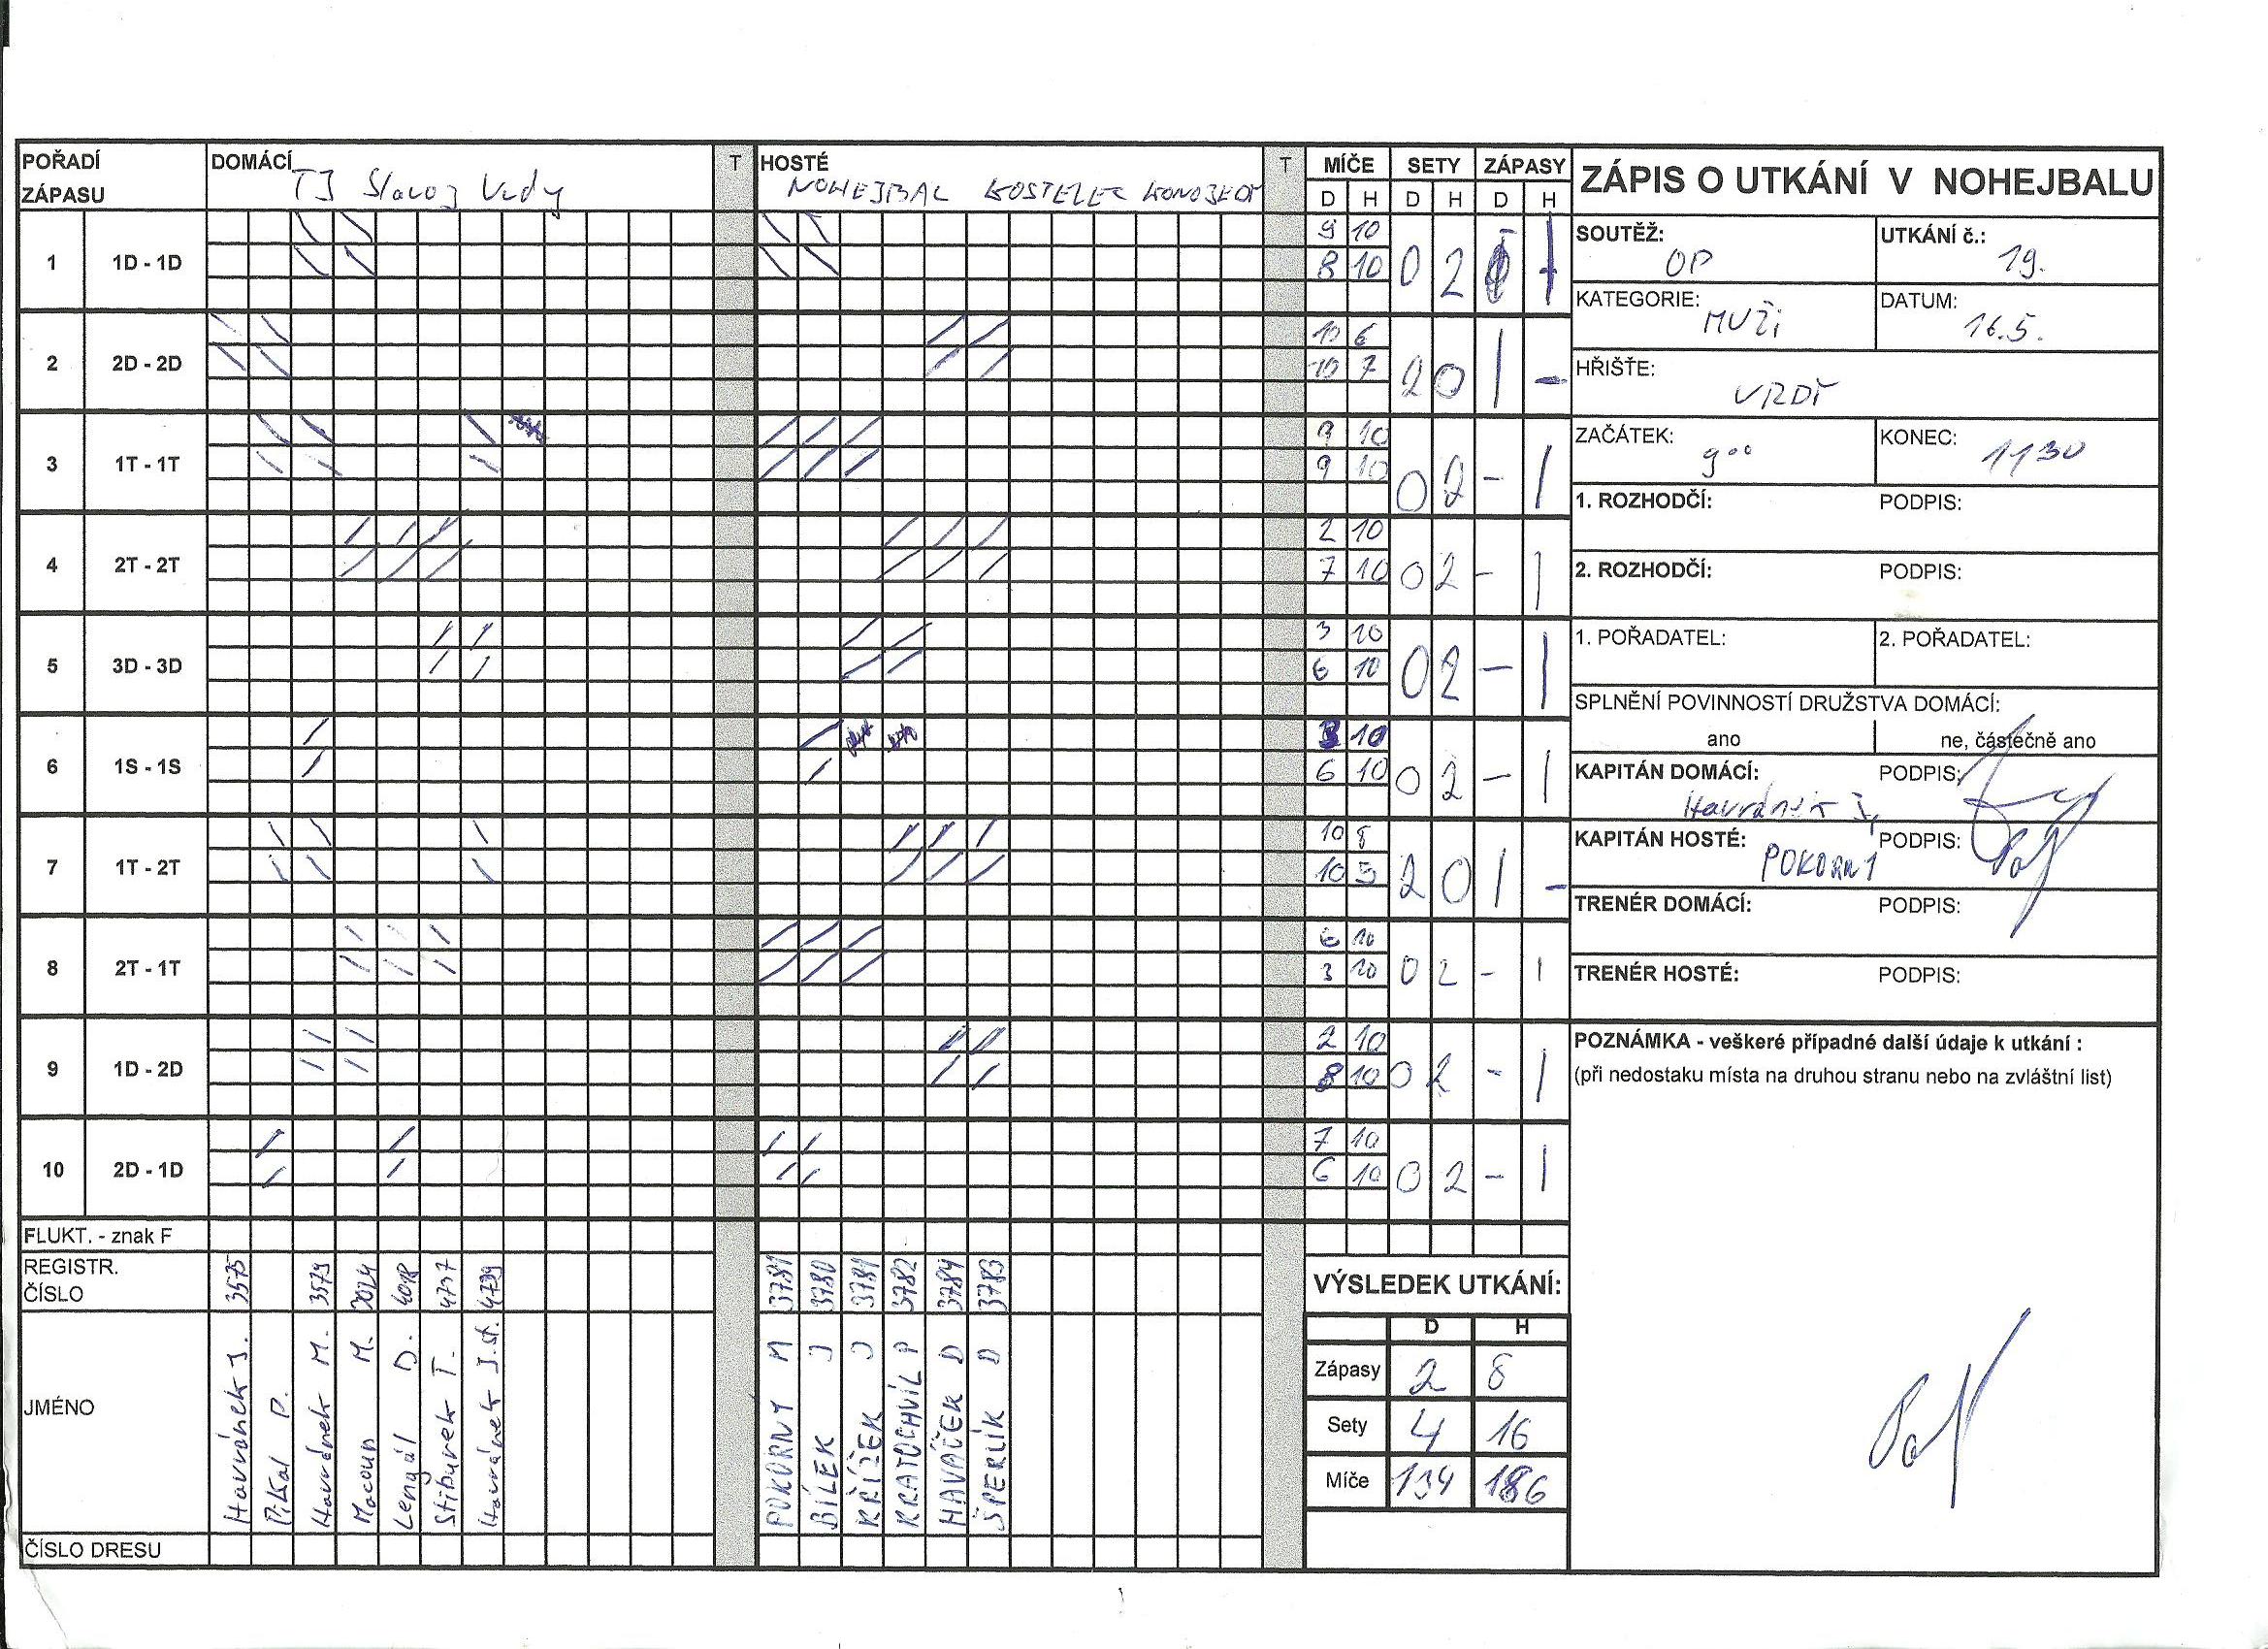 POŘADÍ ZÁPASU DOMÁCÍ TJ Slavoj Vrdy T HOSTÉ NOHEJBAL KOSTELEC T MÍČE SETY ZÁPASY
D H D H D H
1 1D - 1D 9 10 0 2 1
8 10
2 2D - 2D 10 6 2 0 1 -
10 7
3 1T - 1T 9 10 0 2 - 1
9 10
4 2T - 2T 2 10 0 2 - 1
7 10
5 3D - 3D 3 10 0 2 - 1
6 10
6 1S - 1S 3 10 0 2 - 1
6 10
7 1T - 2T 10 8 2 0 1 -
10 5
8 2T - 1T 6 10 0 2 - 1
3 10
9 1D - 2D 2 10 0 2 - 1
8 10
10 2D - 1D 7 10 0 2 - 1
6 10
FLUKT. - znak F
REGISTR. ČÍSLO 3575 3579 4018 4737 3781 3780 3781 3782 3784 3783
JMÉNO
Havránek J.
Pital P.
Havránek M.
Macoun M.
Lengál D.
Stiburek T.
Havránek J. st.
POKORNY M
BÍLEK J
KŘÍŽEK J
KRATOCHVÍL P
HAVÁČEK D
ŠPERLÍK D
ČÍSLO DRESU
VÝSLEDEK UTKÁNÍ:
D H
Zápasy 2 8
Sety 4 16
Míče 134 186
ZÁPIS O UTKÁNÍ V NOHEJBALU
SOUTĚŽ: OP UTKÁNÍ č.: 19.
KATEGORIE: MUŽi DATUM: 16.5.
HŘIŠTE: VRDY
ZAČÁTEK: 9 00 KONEC: 11 30
1. ROZHODČÍ: PODPIS:
2. ROZHODČÍ: PODPIS:
1. POŘADATEL: 2. POŘADATEL:
SPLNĚNÍ POVINNOSTÍ DRUŽSTVA DOMÁCÍ:
ano ne, částečně ano
KAPITÁN DOMÁCÍ: Havránek J. PODPIS:
KAPITÁN HOSTÉ: POKORNY PODPIS:
TRENÉR DOMÁCÍ: PODPIS:
TRENÉR HOSTÉ: PODPIS:
POZNÁMKA - veškeré případné další údaje k utkání :
(při nedostaku místa na druhou stranu nebo na zvláštní list)